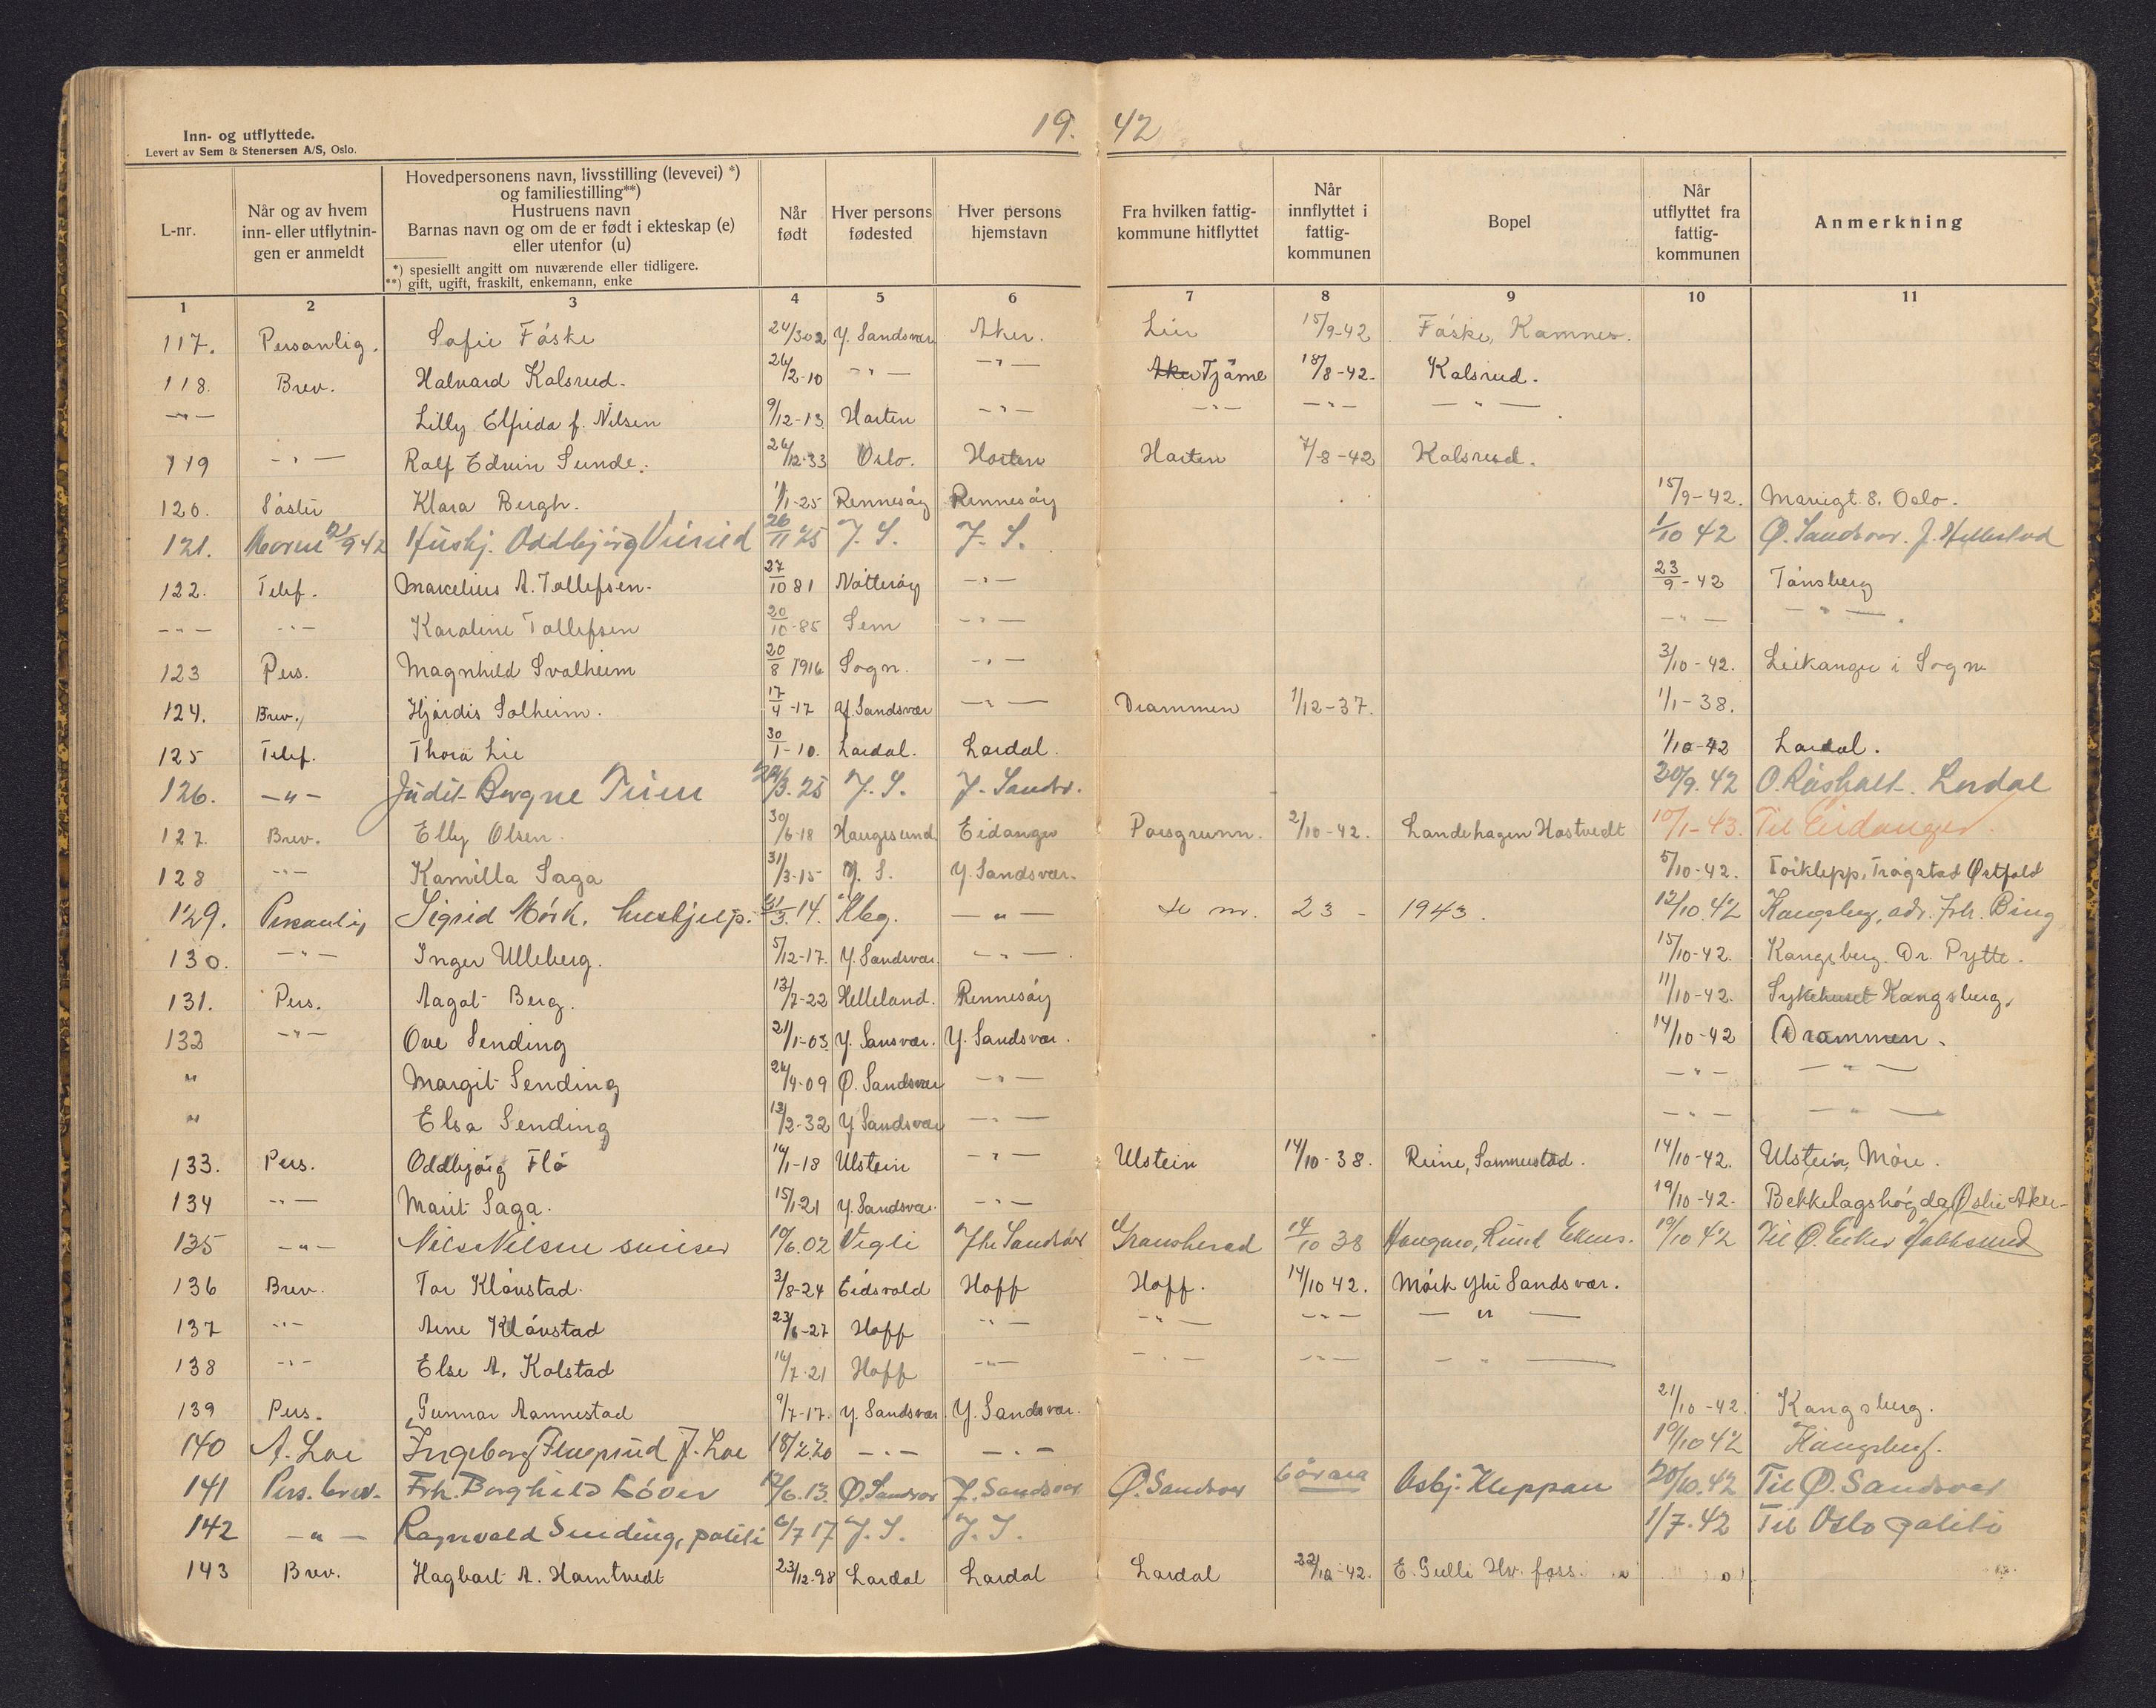 19. 42
Inn- og utflyttede.
Levert av Sem & Stenersen A/S, Oslo.
L-nr.
Når og av hvem
inn- eller utflytnin-
gen er anmeldt
Hovedpersonens navn, livsstilling (levevei) *)
og familiestilling**)
Hustruens navn
Barnas navn og om de er født i ekteskap (e)
eller utenfor (u)
*) spesiellt angitt om nuværende eller tidligere.
**) gift, ugift, fraskilt, enkemann, enke
Når
født
Hver persons
fødested
Hver persons
hjemstavn
Fra hvilken fattig-
kommune hitflyttet
Når
innflyttet i
fattig-
kommunen
Bopel
Når
utflyttet fra
fattig-
kommunen
Anmerkning
1 2 3 4 5 6 7 8 9 10 11
117. Personlig. Sofie Fåske 24/3 02 Y. Sandsvær Aker. Lier 15/9-42 Fåske, Komnes.
118. Brev. Halvard Kolsrud. 26/2-10 -"- -"- Aker Tjöme 18/8-42. Kolsrud.
-"- Lilly Elfrida f. Nilsen 9/12-13 Horten -"- -"- -"- -"-
119 -"- Rolf Edvin Sunde. 26/12-33 Oslo. Horten Horten 7/8-42 Kolsrud.
120. Söster Klara Bergh. 1/1-25 Rennesöy Rennesöy 15/9-42. Mariegt. 8. Oslo.
121. 21/9 42 Hushj. Oddbjørg 26/11 25 Y. S. Y. S. 1/10 42 Ø. Sandsvær. J. Hellestad
122. Telef. Marcelius A. Tollefsen. 27/10 81 Nötteröy -"- 23/9-42 Tönsberg
-"- -"- Karoline Tollefsen 20/10-85 Sem -"- -"- -"-
123 Pers. Magnhild Svalheim 20/8 1916 Sogn. -"- 3/10-42. Leikanger i Sogn
124. Brev. Hjördis Solheim. 17/4-17 Y. Sandsvær -"- Drammen 1/12-37. 1/1-38.
125 Telef. Thora Lie 30/1-10. Lardal. Lardal. 1/10-42 Lardal.
126. -"- Judit Borgne 24/3. 25 Y. S. Y. Sandsv. 20/9. 42 O. Råsholt. Lardal
127. Brev. Elly Olsen. 30/6-18 Haugesund Eidanger Porsgrunn. 2/10-42. Landehagen Hostvedt 10/1-43. Til Eidanger.
128 -"- Kamilla Saga 31/3-15 Y. S. Y. Sandsvær. 5/10-42. Toiklepp, Trögstad Østfold
129. Personlig Sigrid Mörk. hushjelp. 31/3. 14. Kbg. -"- se nr. 23 - 1943. 12/10. 42 Kongsberg, adr. Frk. Bing
130. -"- Inger Ulleberg. 5/12-17. Y. Sandsvær. -"- 15/10-42. Kongsberg. Dr. Pytte.
131. Pers. Aagot Berg. 13/7-22 Helleland. Rennesöy 11/10-42. Sykehuset Kongsberg.
132 -"- Ove Sending 21/1-03. Y. Sansvær. Y. Sandsvær. 14/10-42 Drammen.
" Margit Sending 26/4-09 Ø. Sandsvær -"- -"- -"-
" Elsa Sending 13/2-32 Y. Sandsvær -"- -"- -"-
133. Pers. Oddbjörg Flö 16/1-18 Ulstein -"- Ulstein 14/10-38. Reine, Sommerstad. 14/10-42. Ulstein, Möre.
134 -"- Marit Saga. 15/1-21 Y. Sandsvær. -"- 19/10-42. Bekkelagshögda Østre Aker
135 -"- Nils Nilsen 10/6. 02 Vegli Ytre Sandsvær Gransherad 14/10 38 19/10 42 Til Ø. Eiker Hokksund
136 Brev. Tor Klövstad. 3/8-24 Eidsvold Hoff Hoff. 14/10 42. Mörk Ytre Sandsvær.
137 -"- Arne Klövstad 23/6-27 Hoff -"- -"- -"- -"-
138 -"- Else A. Kolstad 16/7-21 Hoff -"- -"- -"- -"-
139 Pers. Gunnar Aannestad 9/7-17. Y. Sandsvær. Y. Sandsvær. 21/10-42. Kongsberg.
140 A. Loe Ingeborg f. Loe 18/2 20 -"- -"- 19/10 42 Kongsberg.
141 Pers. brev. Frk. Borghild Löver 12/6. 13. Ø. Sandsvær Y. Sandsvær Ø. Sandsvær Asbj. Kleppan 20/10. 42 Til Ø. Sandsvær
142 -"- Ragnvald Sending, politi 6/7 17 Y. S. Y. S. 1/7. 42 Til Oslo politi
143 Brev. Hagbart A. Hamtvedt 23/12-98 Lardal Lardal Lardal 22/10-42. E. Gulli Hv. foss.